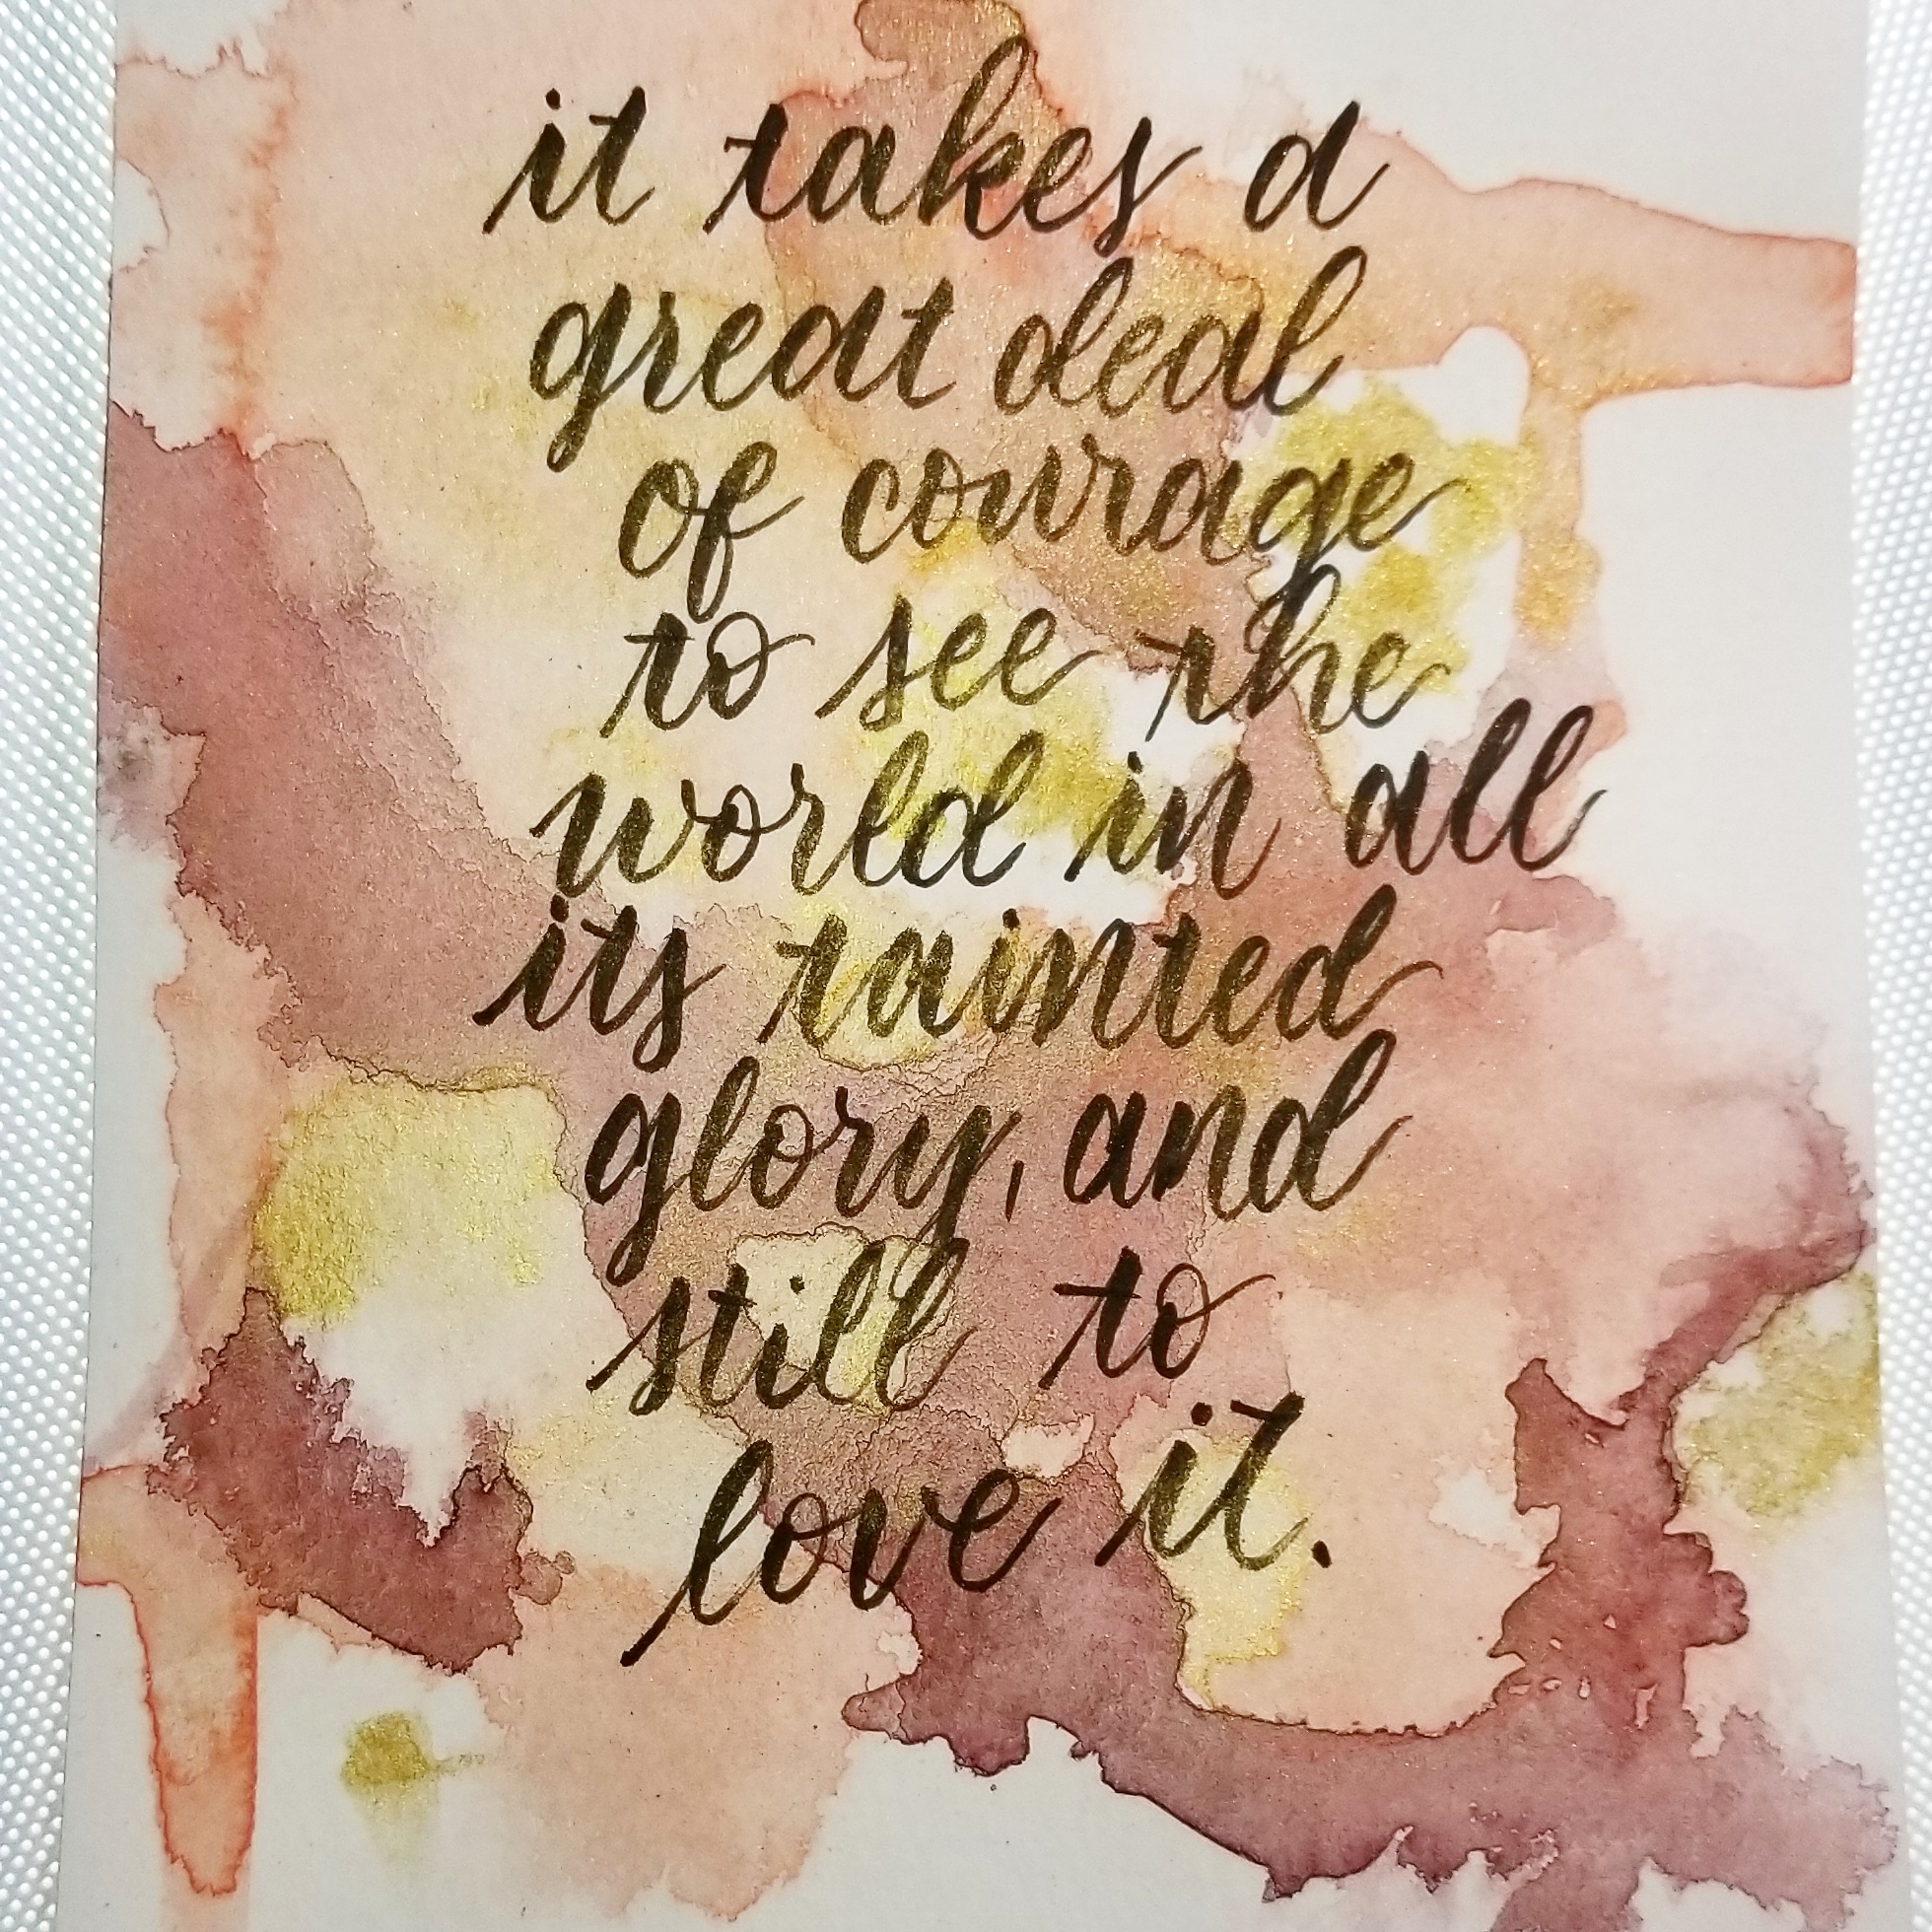 it takes a
great deal
of courage
to see the
world in all
its tainted
glory, and
still to
love it.